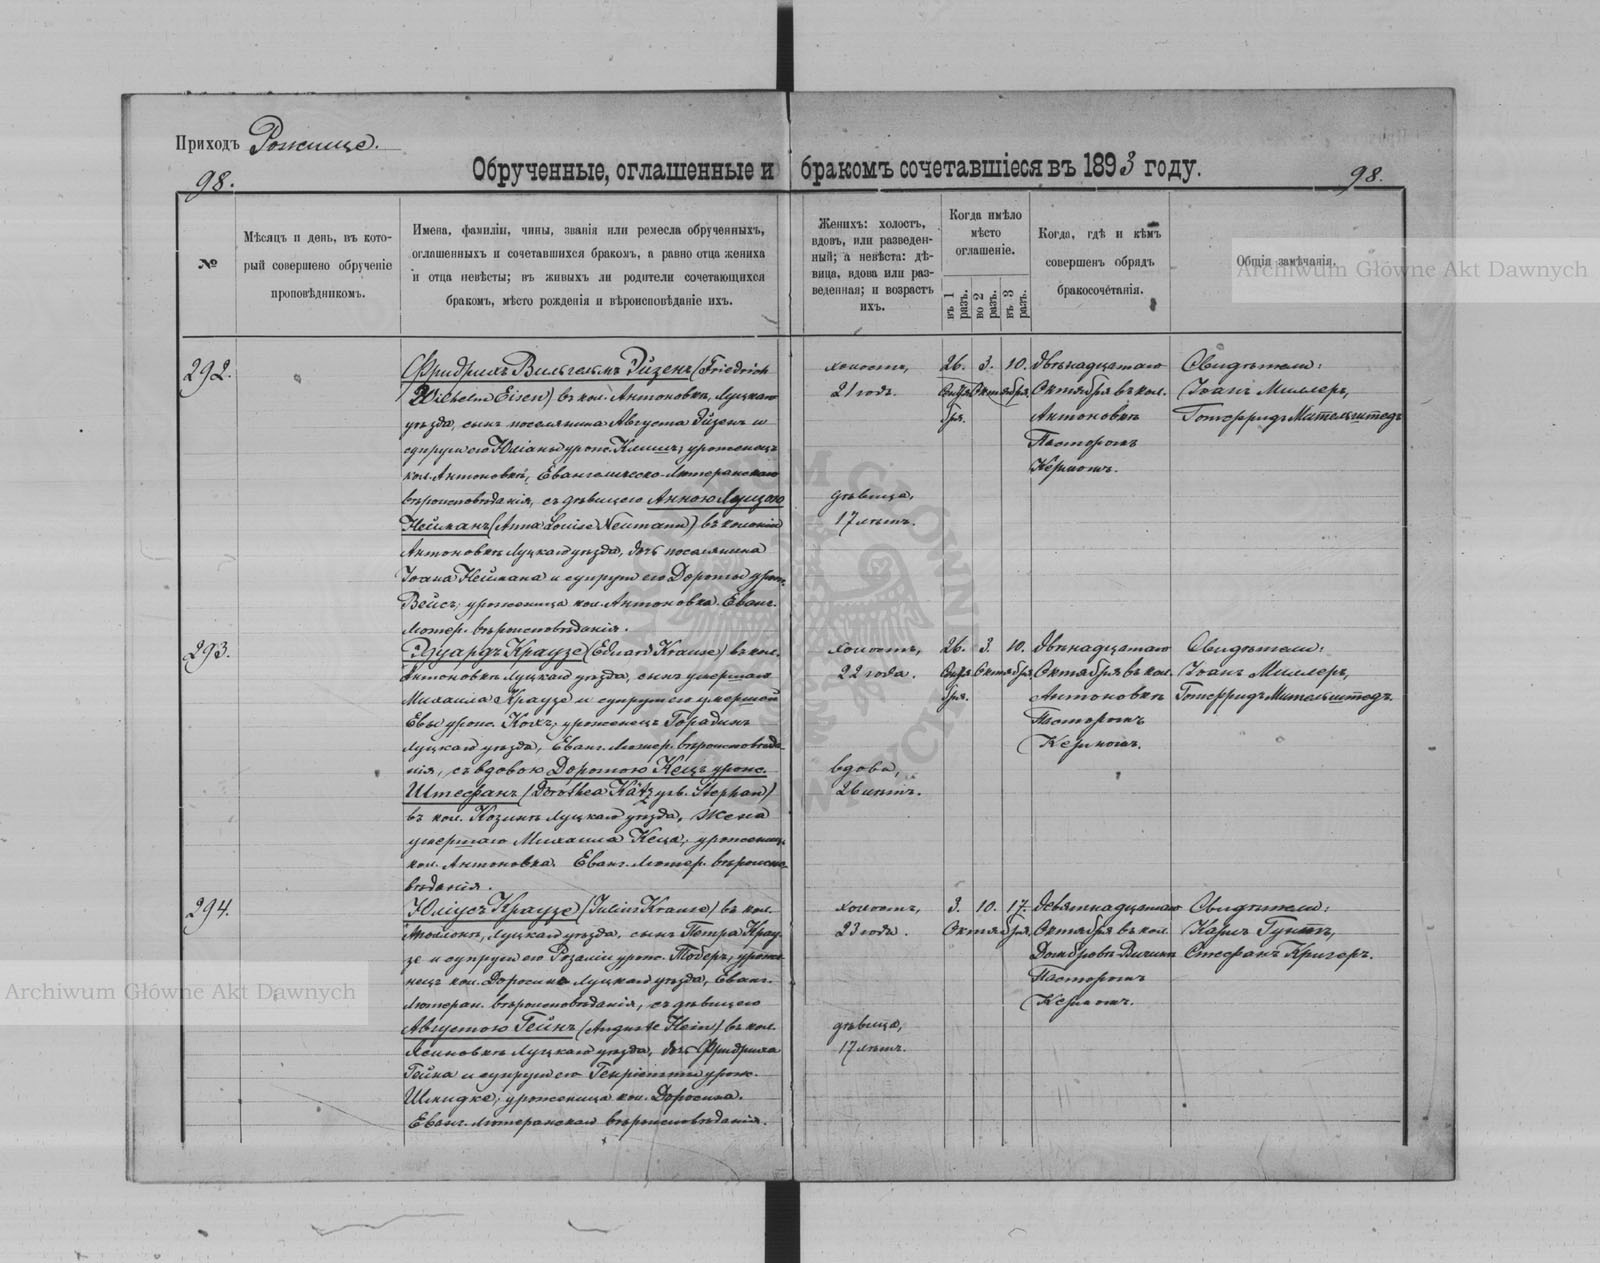 Приходъ Рожище.
Обрученные, оглашенные и бракомъ сочетавшіеся въ 1893 году.
98.
98.
№
Мѣсяцъ и день, въ кото-
рый совершено обрученіе
проповѣдникомъ.
Имена, фамиліи, чины, званія или ремесла обрученныхъ,
оглашенныхъ и сочетавшихся бракомъ, а равно отца жениха
и отца невѣсты; въ живыхъ ли родители сочетающихся
бракомъ, мѣсто рожденія и вѣроисповѣданіе ихъ.
Женихъ: холостъ,
вдовъ, или разведен-
ный; а невѣста: дѣ-
вица, вдова или раз-
веденная; и возрастъ
ихъ.
Когда имѣло
мѣсто
оглашеніе.
въ 1 разъ.
во 2 разъ.
въ 3 разъ.
Когда, гдѣ и кѣмъ
совершенъ обрядъ
бракосочетанія.
Общія замѣчанія.
292.
Фридрихъ Вильгельмъ Эйзенъ (Friedrich
Wilhelm Eisen) въ кол. Антоновкѣ, Луцкаго
уѣзда, сынъ поселянина Августа Эйзенъ и
супруги его Юліаны урожд. уроженецъ
кол. Антоновки, Евангелическо-Лютеранскаго
вѣроисповѣданія, съ дѣвицею Анною Луизою
Нейманъ (Anna Louise Neumann) въ колоніи
Антоновкѣ Луцкаго уѣзда, дочь поселянина
Іоана Неймана и супруги его Доротеи урож.
Вейсъ, уроженица кол. Антоновка. Еванг.
Лютер. вѣроисповѣданія.
холостъ,
21 годъ.
дѣвица,
17 лѣтъ.
26. 3. 10.
Сентя- Октября.
бря.
Двѣнадцатаго
Октября въ кол.
Антоновкѣ
Пасторомъ
Керномъ.
Свидѣтели:
Іоанъ Миллеръ,
Готфридъ Мительштедъ
293.
Эдуардъ Краузе (Eduard Krause) въ кол.
Антоновкѣ Луцкаго уѣзда, сынъ умершаго
Михаила Краузе и супруги его умершей
Евы урож. Кохъ, уроженецъ Городинъ
Луцкаго уѣзда, Еванг. Лютер. вѣроисповѣда-
нія, съ вдовою Доротею Кецъ урож.
Штефанъ (Dorothea Kätz geb. Stephan)
въ кол. Козинъ Луцкаго уѣзда, жена
умершаго Михаила Кеца, урожениц.
кол. Антоновка. Еванг. Лютер. вѣроиспо-
вѣданія.
холостъ,
22 года.
вдова,
26 лѣтъ.
26. 3. 10.
Сентя- Октября.
бря.
Двѣнадцатаго
Октября въ кол.
Антоновкѣ
Пасторомъ
Керномъ.
Свидѣтели:
Іоанъ Миллеръ,
Готфридъ Мительштедъ.
294.
Юліусъ Краузе (Julius Krause) въ кол.
Луцкаго уѣзда, сынъ Петра Крау-
зе и супруги его Розаліи урож. Тоберъ, уроже-
нецъ кол. Доросинъ Луцкаго уѣзда, Еванг.
Лютеран. вѣроисповѣданія, съ дѣвицею
Августою Гейнъ (Auguste Hein) въ кол.
Ясиновкѣ Луцкаго уѣзда, дочь Фридриха
Гейна и супруги его Генріетты урож.
Шмидке, уроженица кол. Доросина.
Еванг. Лютеранскаго вѣроисповѣданія.
холостъ,
23 года.
дѣвица,
17 лѣтъ.
3. 10. 17.
Октября.
Девятнадцатаго
Октября въ кол.
Пасторомъ
Керномъ.
Свидѣтели:
Карлъ
Стефанъ Кригеръ.
Archiwum Główne Akt Dawnych
Archiwum Główne Akt Dawnych